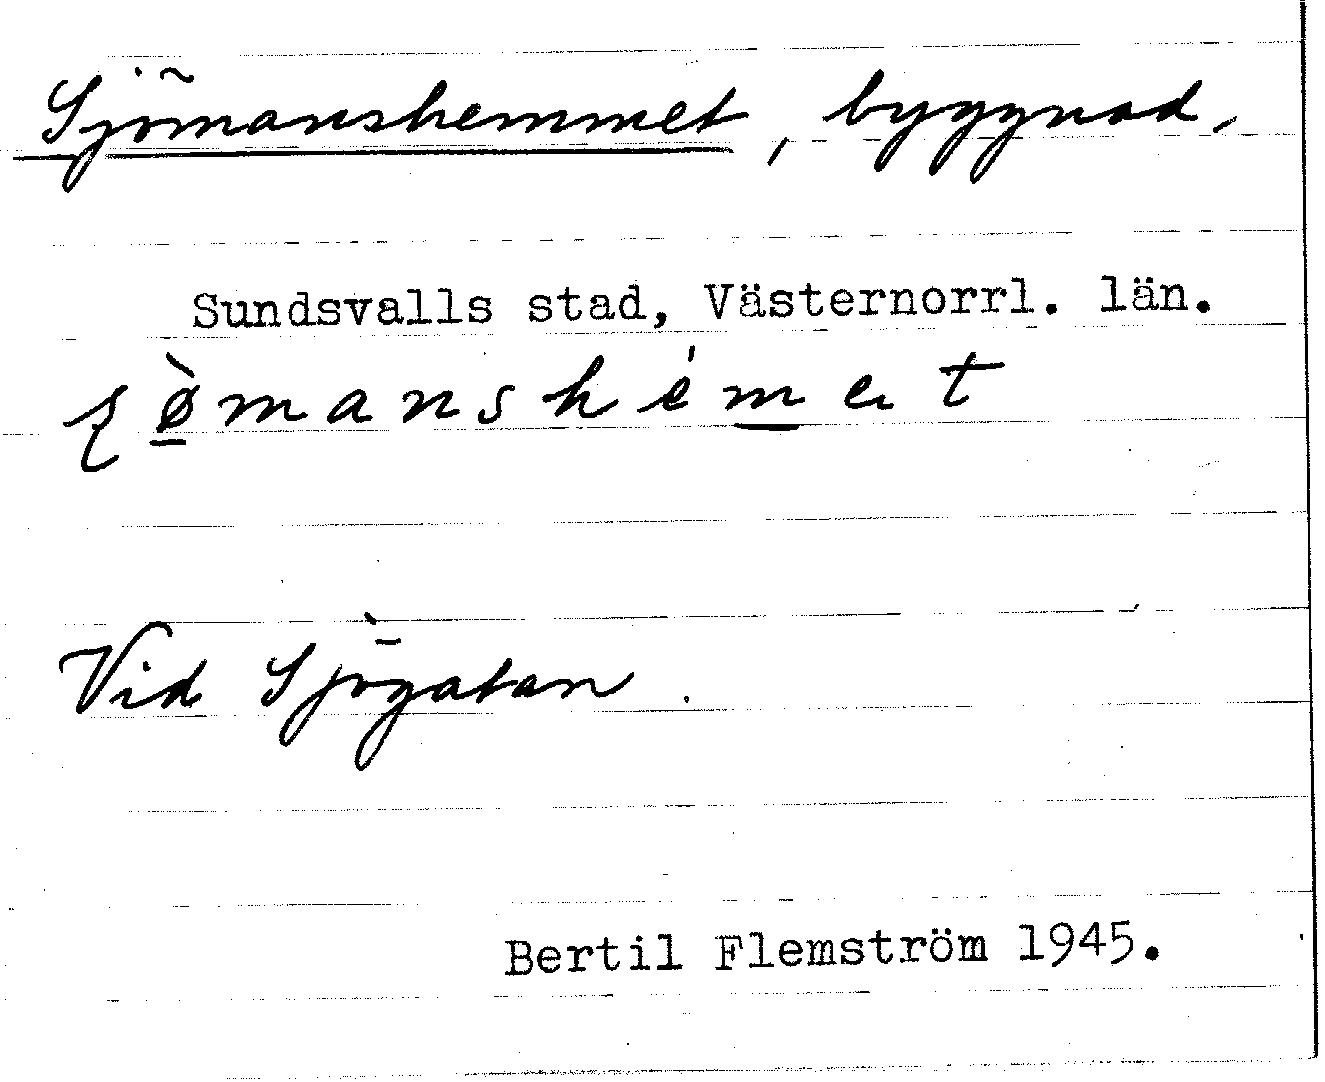 Sjömanshemmet, byggnad,
Sundsvalls stad, Västernorrl. län.
ʂø̠̀manshém̲et
Vid Sjögatan.
Bertil Flemström 1945.